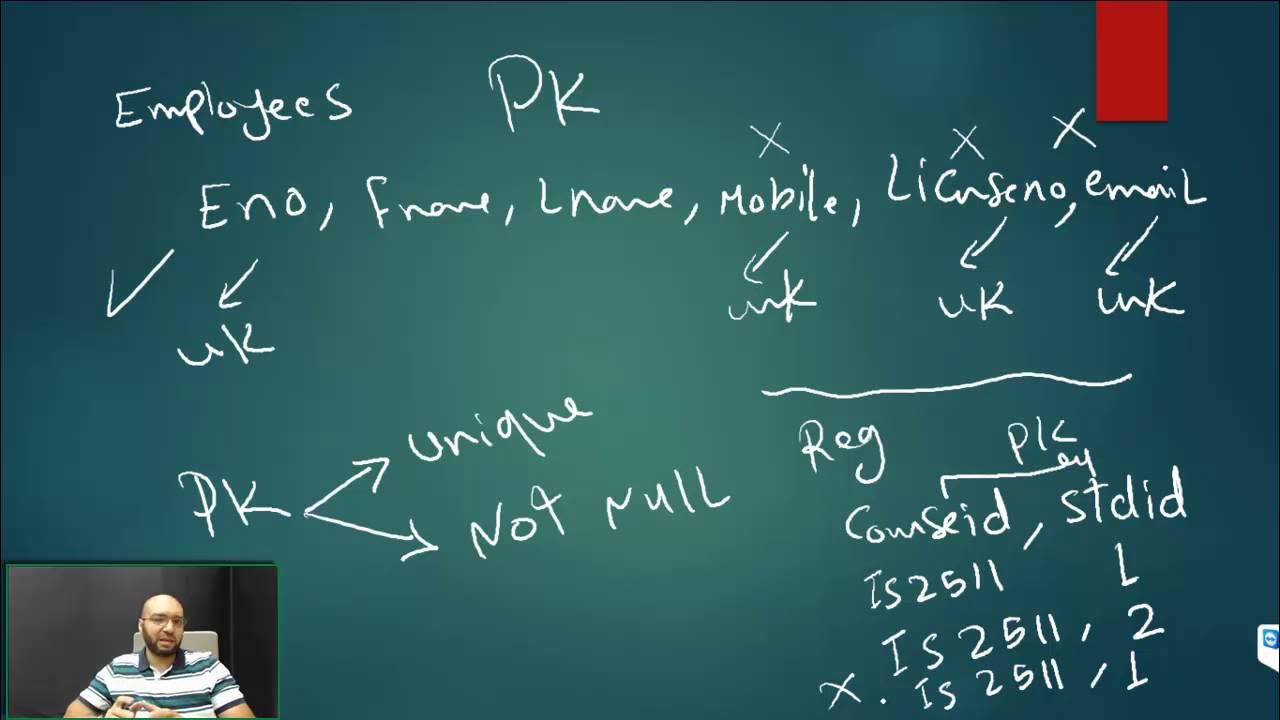 Employees PK
X X X
Eno, Fname, Lname, Mobile, Licenseno, email
uk uk uk uk
PK unique
Not NULL
Reg PK
Courseid, Stdid
Is2511 1
Is 2511, 2
X. Is 2511, 1